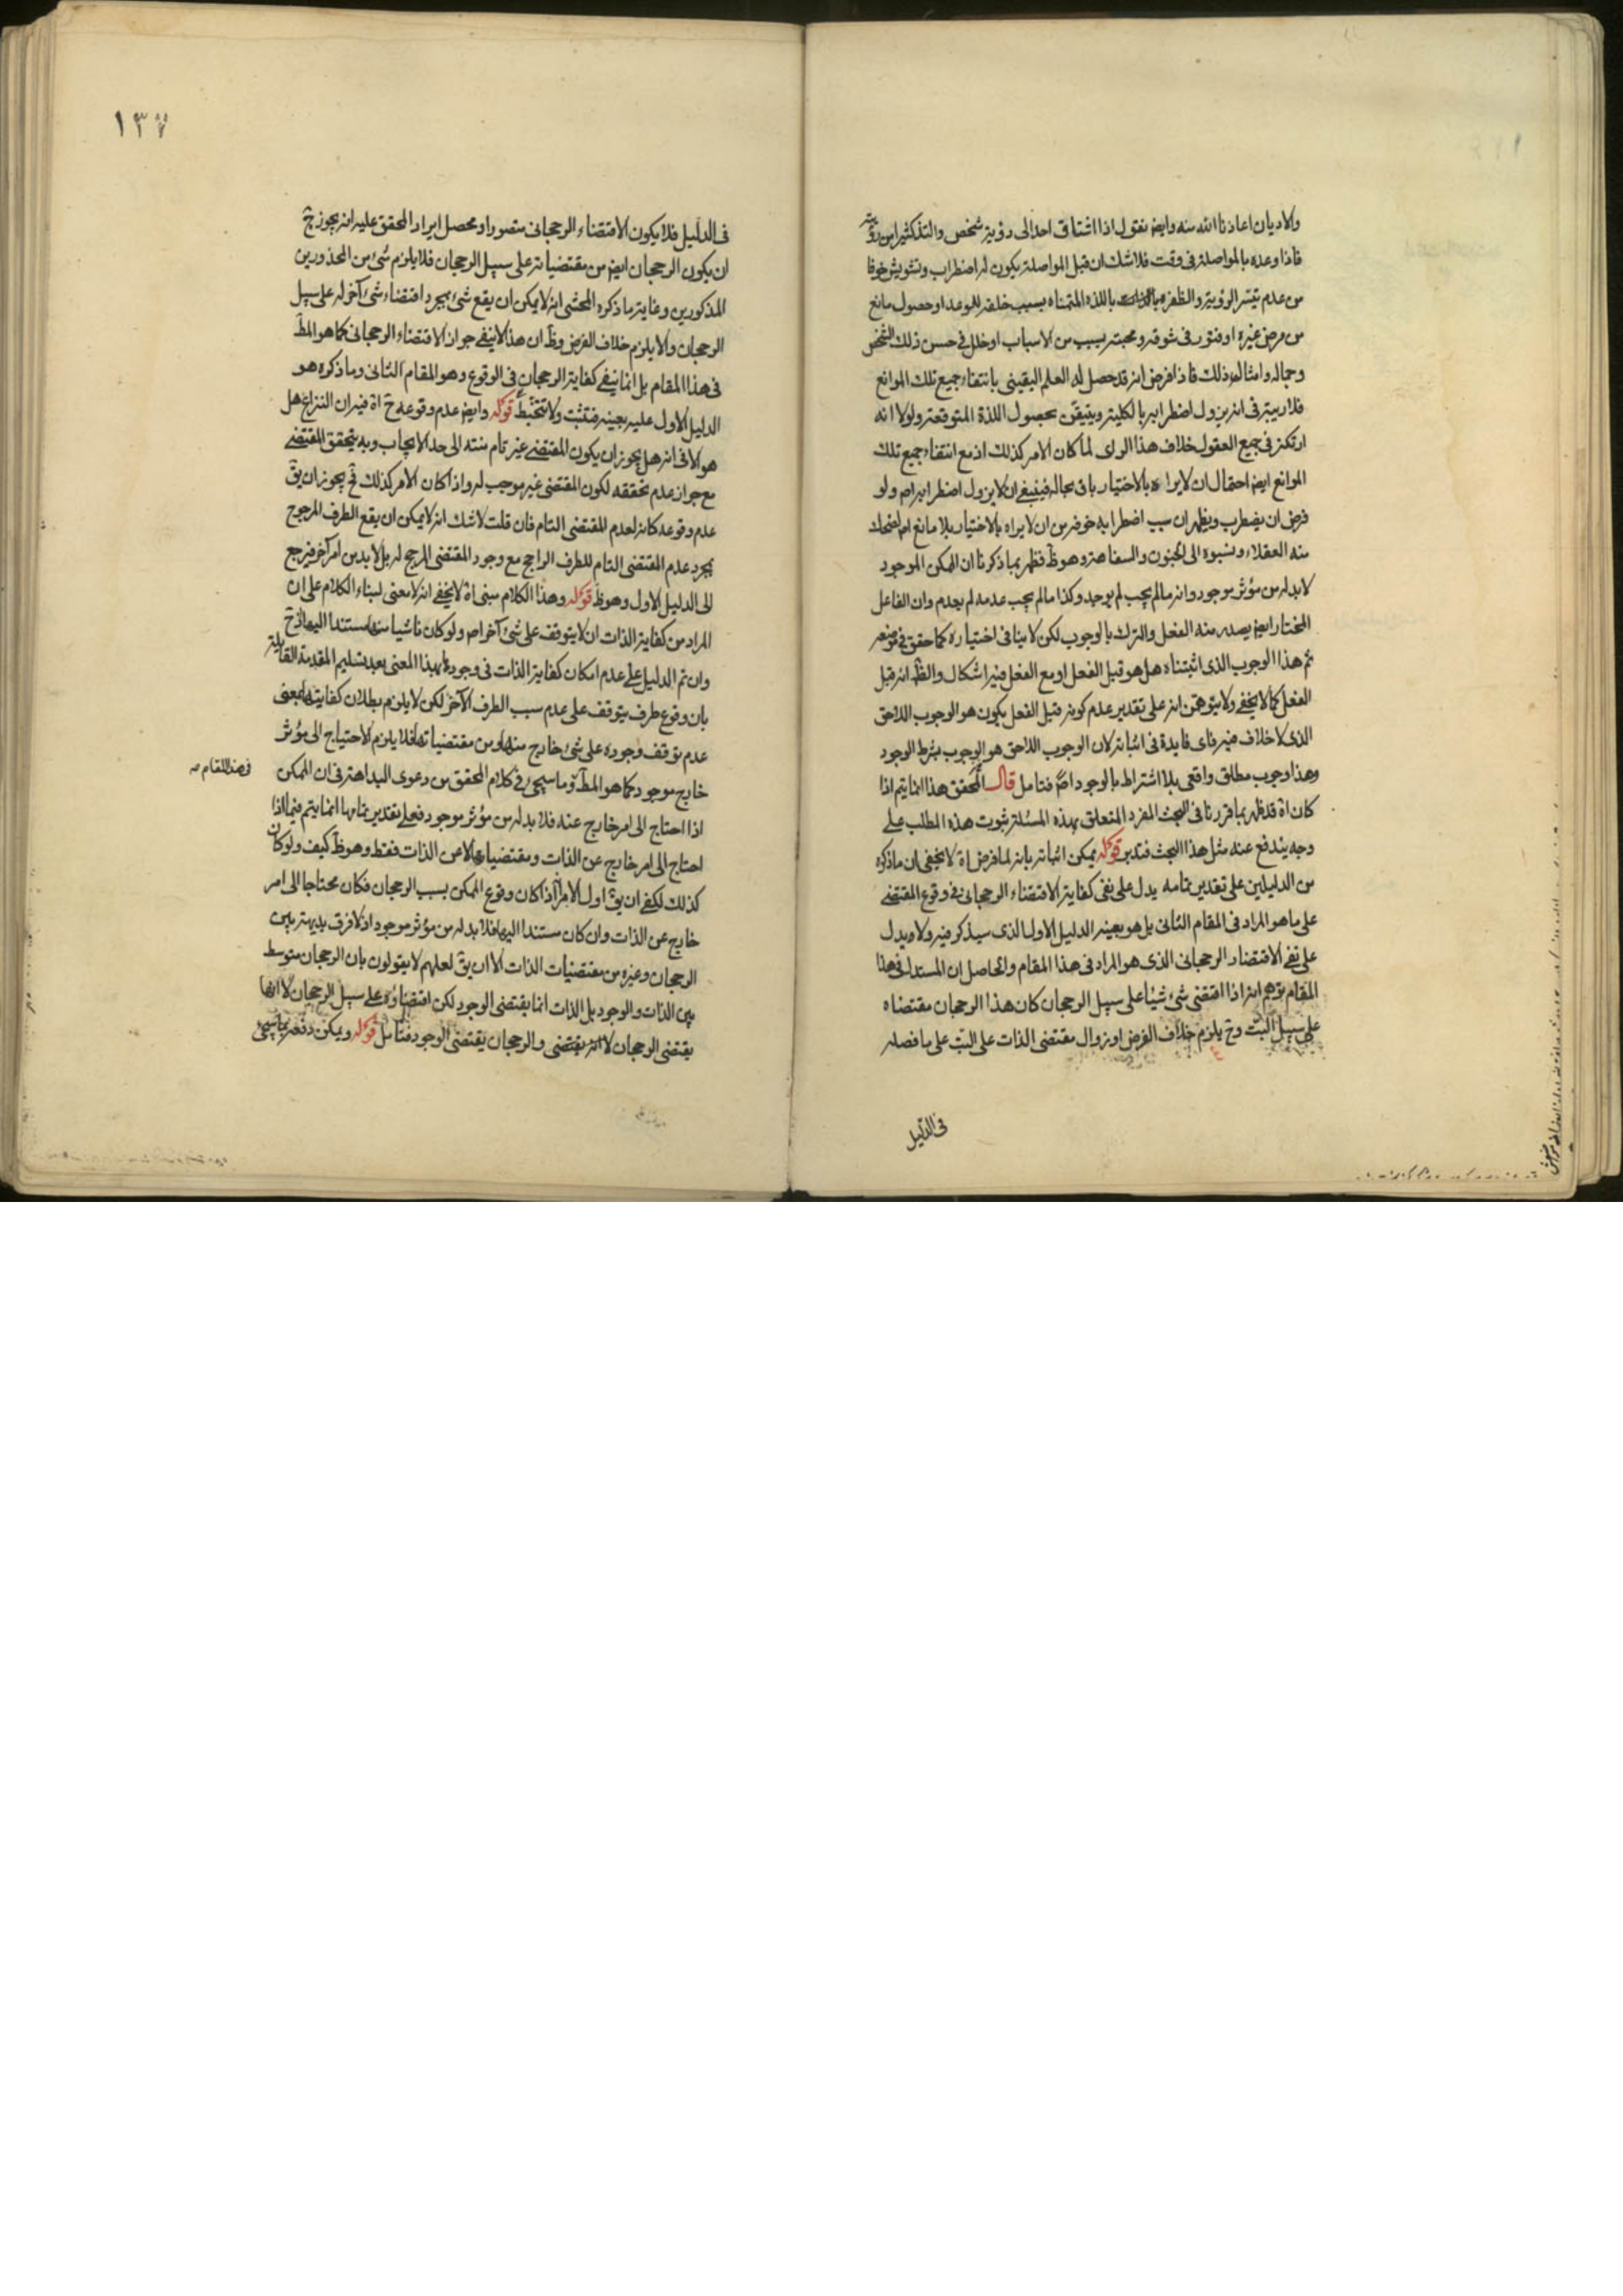 والاديان اعاذنا الله منه وايضا نقول اذا اشتاق احد الى رؤية شخص والتذ كثيرا من رؤيته
فاذا وعده بالمواصلة فى وقت فلا شك ان قبل المواصلة يكون له اضطراب وتشويش خوفا
من عدم تيسر الرؤية والظفر باللذة المتمناه بسبب خلفه للوعد او حصول مانع
من مرض غيره او فتور فى شوقه ومحبته بسبب من الاسباب او خلل فى حسن ذلك الشخص
وجماله وامثال ذلك فاذا فرض انه قد حصل له العلم اليقينى بانتفاء جميع تلك الموانع
فلا ريبة فى انه يزول اضطرابه بالكلية ويتيقن بحصول اللذة المتوقعة ولولا انه
ارتكز فى جميع العقول خلاف هذا الراى لما كان الامر كذلك اذ مع انتفاء جميع تلك
الموانع ايض احتمال ان لا يراه بالاختيار باق بحاله فينبغى ان لا يزول اضطرابه اصلا ولو
فرض ان يضطرب ويظهر ان سبب اضطرابه خوفه من ان لا يراه بالاختيار بلا مانع اصلا لضحك
منه العقلاء ونسبوه الى الجنون والسفاهة وهو ظ فظهر بما ذكرنا ان الممكن الموجود
لا بد له من مؤثر موجود وانه ما لم يجب لم يوجد وكذا ما لم يجب عدمه لم يعدم وان الفاعل
المختار ايض يصدر منه الفعل والترك بالوجوب لكن لا ينافى اختياره كما حقق فى موضعه
ثم هذا الوجوب الذى اثبتناه هل هو قبل الفعل او مع الفعل فيه اشكال والظ انه قبل
الفعل كما لا يخفى ولا يتوهمن انه على تقدير عدم كونه قبل الفعل يكون هو الوجوب اللاحق
الذى لا خلاف فيه فاى فايدة فى اثباته لان الوجوب اللاحق هو الوجوب بشرط الوجود
وهذا وجوب مطلق واقعى بلا اشتراط بالوجود اصلا فتامل قال المحقق هذا انما يتم اذا
كان اه قد ظهر بما قررنا فى البحث المفرد المتعلق بهذه المسئلة ثبوت هذه المطلب على
وجه يندفع عنه مثل هذا البحث فتدبر قوله يمكن اثباته بانه لما فرض اه لا يخفى ان ما ذكره
من الدليلين على تقدير تمامه يدل على نفى كفاية الاقتضاء الرجحانى فى وقوع المقتضى
على ما هو المراد فى المقام الثانى بل هو بعينه الدليل الاول الذى سيذكر فيه ولا يدل
على نفى الاقتضاء الرجحانى الذى هو المراد فى هذا المقام والحاصل ان المستدل فى هذا
المقام توهم انه اذا اقتضى شئ شيئا على سبيل الرجحان كان هذا الرجحان مقتضاه
على سبيل البت وح يلزم خلاف الفرض او زوال مقتضى الذات على البت على ما فصله
فى الدليل
١٣٧
فى الدليل فلا يكون الاقتضاء الرجحانى متصورا ومحصل ايراد المحقق عليه انه يجوز ح
ان يكون الرجحان ايض من مقتضياته على سبيل الرجحان فلا يلزم شئ من المحذورين
المذكورين وغاية ما ذكره المحشى انه لا يمكن ان يقع شئ بمجرد اقتضاء شئ آخر له على سبيل
الرجحان والا يلزم خلاف الفرض وظ ان هذا لا ينفى جواز الاقتضاء الرجحانى كما هو المط
فى هذا المقام بل انما ينفى كفاية الرجحان فى الوقوع وهو المقام الثانى وما ذكره هو
الدليل الاول عليه بعينه فتثبت ولا تتخبط قوله وايض عدم وقوعه ح اه فيه ان النزاع هل
هو الا فى انه هل يجوز ان يكون المقتضى غير تام منته الى حد الايجاب وبه يتحقق المقتضى
مع جواز عدم تحققه لكون المقتضى غير موجب له واذا كان الامر كذلك فح يجوز ان يق
عدم وقوعه كانه لعدم المقتضى التام فان قلت لا شك انه لا يمكن ان يقع الطرف المرجوح
بمجرد عدم المقتضى التام للطرف الراجح مع وجود المقتضى المرجح له بل لا بد من امر آخر فيرجع
الى الدليل الاول وهو ظ قوله وهذا الكلام مبنى اه لا يخفى انه لا معنى لبناء الكلام على ان
المراد من كفاية الذات ان لا يتوقف على شئ آخر اصلا ولو كان ناشيا منها مستندا اليها اذ ح
وان تم الدليل على عدم امكان كفاية الذات فى وجودها بهذا المعنى بعد تسليم المقدمة القايلة
بان وقوع طرف يتوقف على عدم سبب الطرف الآخر لكن لا يلزم بطلان كفايتها بمعنى
عدم توقف وجوده على شئ خارج منها ومن مقتضياتها فلا يلزم الاحتياج الى مؤثر
خارج موجود كما هو المط وما سيجئ فى كلام المحقق من دعوى البداهة فى ان الممكن
فى هذا المقام صه
اذا احتاج الى امر خارج عنه فلا بد له من مؤثر موجود فعلى تقدير تمامها انما يتم فيما اذا
احتاج الى امر خارج عن الذات ومقتضياتها لا عن الذات فقط وهو ظ كيف ولو كان
كذلك لكفى ان يق اول الامر اذا كان وقوع الممكن بسبب الرجحان فكان محتاجا الى امر
خارج عن الذات وان كان مستندا اليها فلا بد له من مؤثر موجود اذ لا فرق بديهة بين
الرجحان وغيره من مقتضيات الذات الا ان يق لعلهم لا يقولون بان الرجحان متوسط
بين الذات والوجود بل الذات انما يقتضى الوجود لكن اقتضاؤه على سبيل الرجحان لا انها
يقتضى الرجحان والرجحان يقتضى الوجود فتامل قوله ويمكن دفعه بما سيجئ